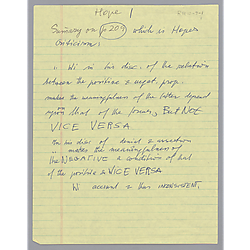 Hope 1
Summary on p 209 which is Hope's
Criticism:
"W in his disc. of the relation
between the positive & negat. prop.
makes the meaningfulness of the latter depend
upon that of the former, BUT NOT
VICE VERSA
In his disc of denial & assertion
makes the meaningfulness of
the NEGATIVE a condition of that
of the positive & VICE VERSA
W account is thus INCONSISTENT.